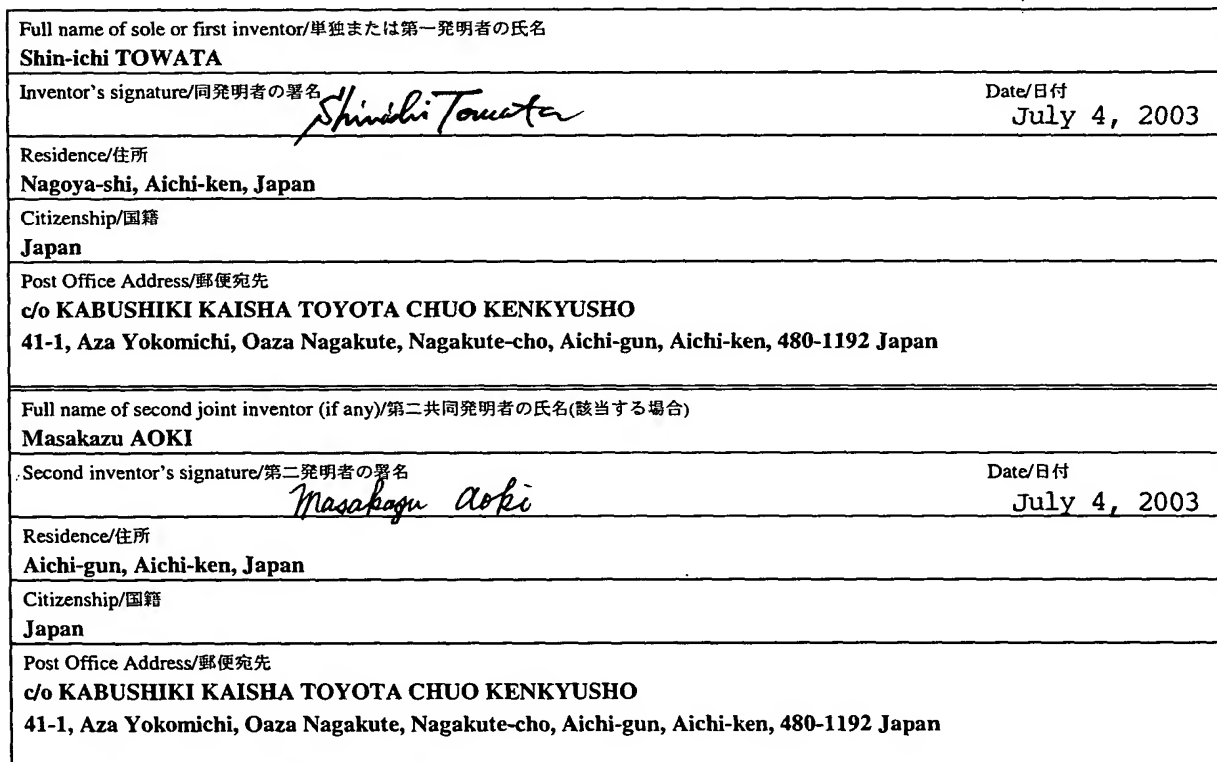 Full name of sole or first inventor/単独または第一発明者の氏名
Shin-ichi TOWATA
Inventor's signature/同発明者の署名 Shinichi Towata Date/日付
July 4, 2003
Residence/住所
Nagoya-shi, Aichi-ken, Japan
Citizenship/国籍
Japan
Post Office Address/郵便宛先
c/o KABUSHIKI KAISHA TOYOTA CHUO KENKYUSHO
41-1, Aza Yokomichi, Oaza Nagakute, Nagakute-cho, Aichi-gun, Aichi-ken, 480-1192 Japan
Full name of second joint inventor (if any)/第二共同発明者の氏名(該当する場合)
Masakazu AOKI
Second inventor's signature/第二発明者の署名 Date/日付
Masakazu Aoki July 4, 2003
Residence/住所
Aichi-gun, Aichi-ken, Japan
Citizenship/国籍
Japan
Post Office Address/郵便宛先
c/o KABUSHIKI KAISHA TOYOTA CHUO KENKYUSHO
41-1, Aza Yokomichi, Oaza Nagakute, Nagakute-cho, Aichi-gun, Aichi-ken, 480-1192 Japan